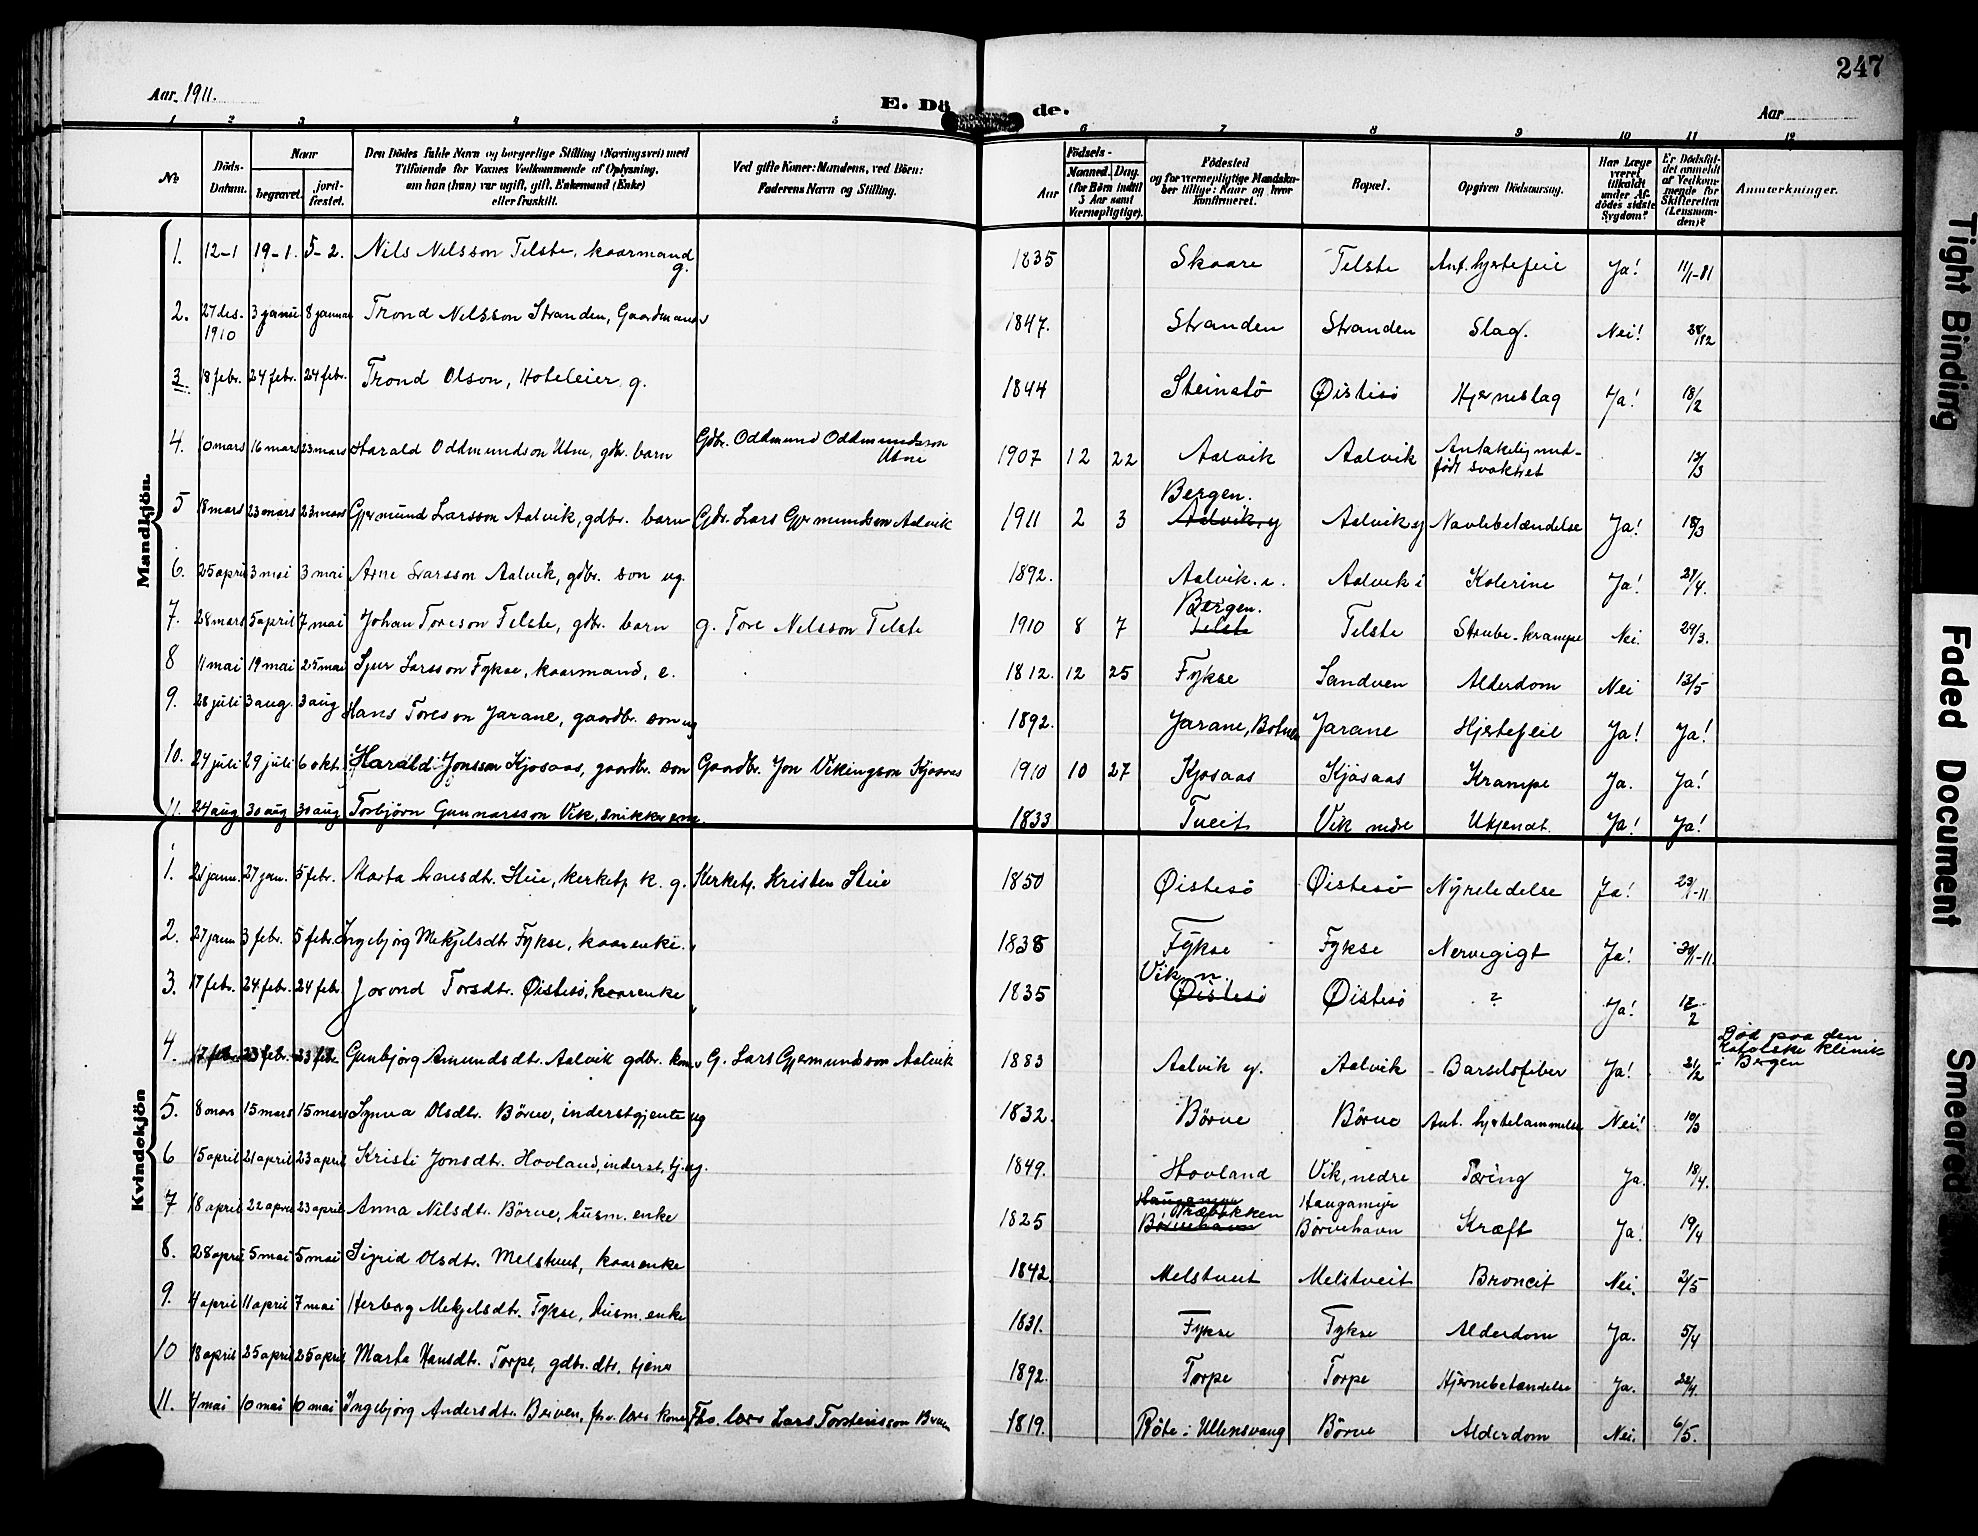 247
Aar 1911.
E. Döde.
Aar
1 2 3 4 5 6 7 8 9 10 11 12
No.
Döds-Datum.
Naar
begravet.
jord-fæstet.
Den Dödes fulde Navn og borgerlige Stilling (Næringsvei) med
Tilføiende for Voxnes Vedkommende af Oplysning,
om han (hun) var ugift, gift, Enkemand (Enke)
eller fraskilt.
Ved gifte Koner: Mandens, ved Börn:
Faderens Navn og Stilling.
Födsels-
Aar
Maaned. Dag.
(for Börn indtil
3 Aar samt
Værnepligtige).
Födested
og for værnepligtige Mandskaber tillige: Naar og hvor
konfirmeret.
Bopæl.
Opgiven Dödsaarsag.
Har Læge
været
tilkaldt
under Af-
dödes sidste
Sygdom?
Er Dödsfal-
det anmeldt
af Vedkom-
mende for
Skifteretten
(Lensman-
den)?
Anmærkninger.
Mandkjön.
1. 12-1 19-1. 5-2. Nils Nilsson Telste, kaarmand g. 1835 Skaare Telste Ant. hjertefeil Ja! 11/1-81
2. 27 des. 1910 3 janu 8 januar Trond Nilsson Stranden, Gaardmand 1847. Stranden Stranden Slag. Nei! 28/12
3. 18 febr. 24 febr. 24 febr. Trond Olson, Hoteleier g. 1844 Steinstö Øistisö Hjerneslag Ja! 18/2
4. 10 mars 16 mars 23 mars Harald Oddmundson Utne, gdbr. barn Gdbr. Oddmund Oddmundsson Utne 1907 12 22 Aalvik Aalvik Antakelig medfødt svakhet 13/3
5 18 mars 23 mars 23 mars Gjermund Larsson Aalvik, gdbr. barn Gdbr. Lars Gjermundson Aalvik 1911 2 3 Bergen. Aalvik, y Aalvik y Navlebetændelse Ja! 18/3
6. 25 april 3 mai 3 mai Arne Larsson Aalvik, gdbr. son ug. 1892. Aalvik. i. Aalvik i Kolerine Ja! 27/4.
7. 28 mars 5 april 7 mai Johan Toreson Telste, gdbr. barn g. Tore Nilsson Telste 1910 8 7 Bergen. Telste Telste Strube-krampe Nei 29/3.
8 11 mai 19 mai 25 mai Sjur Larsson Fykse, kaarmand, e. 1812. 12 25 Fykse Sandven Alderdom Nei 13/5
9. 28 juli 3 aug. 3 aug Hans Toreson Jarane, gaardbr. son ug 1892. Jarane, Botnen Jarane Hjertefeil Ja! Ja!
10. 24 juli 29 juli 6 okt. Harald Jonsson Kjosaas, gaardbr. son Gaardbr. Jon Vikingson Kjosaas 1910 10 27 Kjosaas Kjosaas Krampe Ja. Ja!
11. 24 aug 30 aug 30 aug Torbjörn Gunnarsson Vik, snikker enkem 1833 Tveit Vik nedre Ukjendt. Ja! Ja!
Kvindekjön
1. 21 janu. 27 jan. 5 febr. Marta Larsdtr. Steie, kerketj. k. g. Kerketj. Kristen Steie 1850 Øistesö Øistesö Nyrelidelse Ja! 23/1-11
2. 27 janu 3 febr. 5 febr. Ingebjörg Mekjelsdtr Fykse, kaarenke. 1838 Fykse Fykse Nervegigt Ja! 30/1-11.
3. 17 febr. 24 febr. 24 febr Jorond Torsdtr. Øistesö, kaarenke 1835 Vik n. Øistesö Øistesö ? Ja! 18/2
4. 17 febr. 23 febr. 23 febr. Gunbjörg Amundsdtr. Aalvik gdbr. kone G. Lars Gjermundson Aalvik 1883 Aalvik y. Aalvik Barselsfeber Ja! 21/2 Död paa den katolske klinik i Bergen
5. 8 mars 15 mars 15 mars Synva Olsdtr. Börve, inderstgjente ug 1832. Börve Börve Ant. hjertelammelse Nei! 10/3
6 15 april 21 april 23 april Kristi Jonsdtr. Hovland, inderst. tj. ug. 1849. Hovland Vik, nedre Tæring Ja. 18/4.
7 18 april 22 april 23 april Anna Nilsdtr. Börve, husm. enke 1825 Haugamyr Træbakken Börvehavn Haugamyr Börvehavn Kræft Ja! 19/4
8. 28 april 5 mai 5 mai Sigrid Olsdtr. Melstveit, kaarenke 1842. Melstveit Melstveit Broncit Nei. 2/5
9. 4 april 11 april 7 mai Herborg Mekjelsdtr. Fykse, husm. enke 1831. Fykse Fykse Alderdom Ja. 5/4
10 18 april 25 april 25 april Marta Hansdtr. Torpe, gdbr. dtr. tjene 1892. Torpe Torpe Hjernebetændelse Ja. 22/4.
11. 4 mai 10 mai 10 mai Ingebjörg Andersdtr. Beiven, fhv. læres kone Fhv. lærs Lars Torsteinsson 1819. Röte i Ullensvang Börve Alderdom Nei. 6/5.
Tight Binding
Faded Document
Smeared